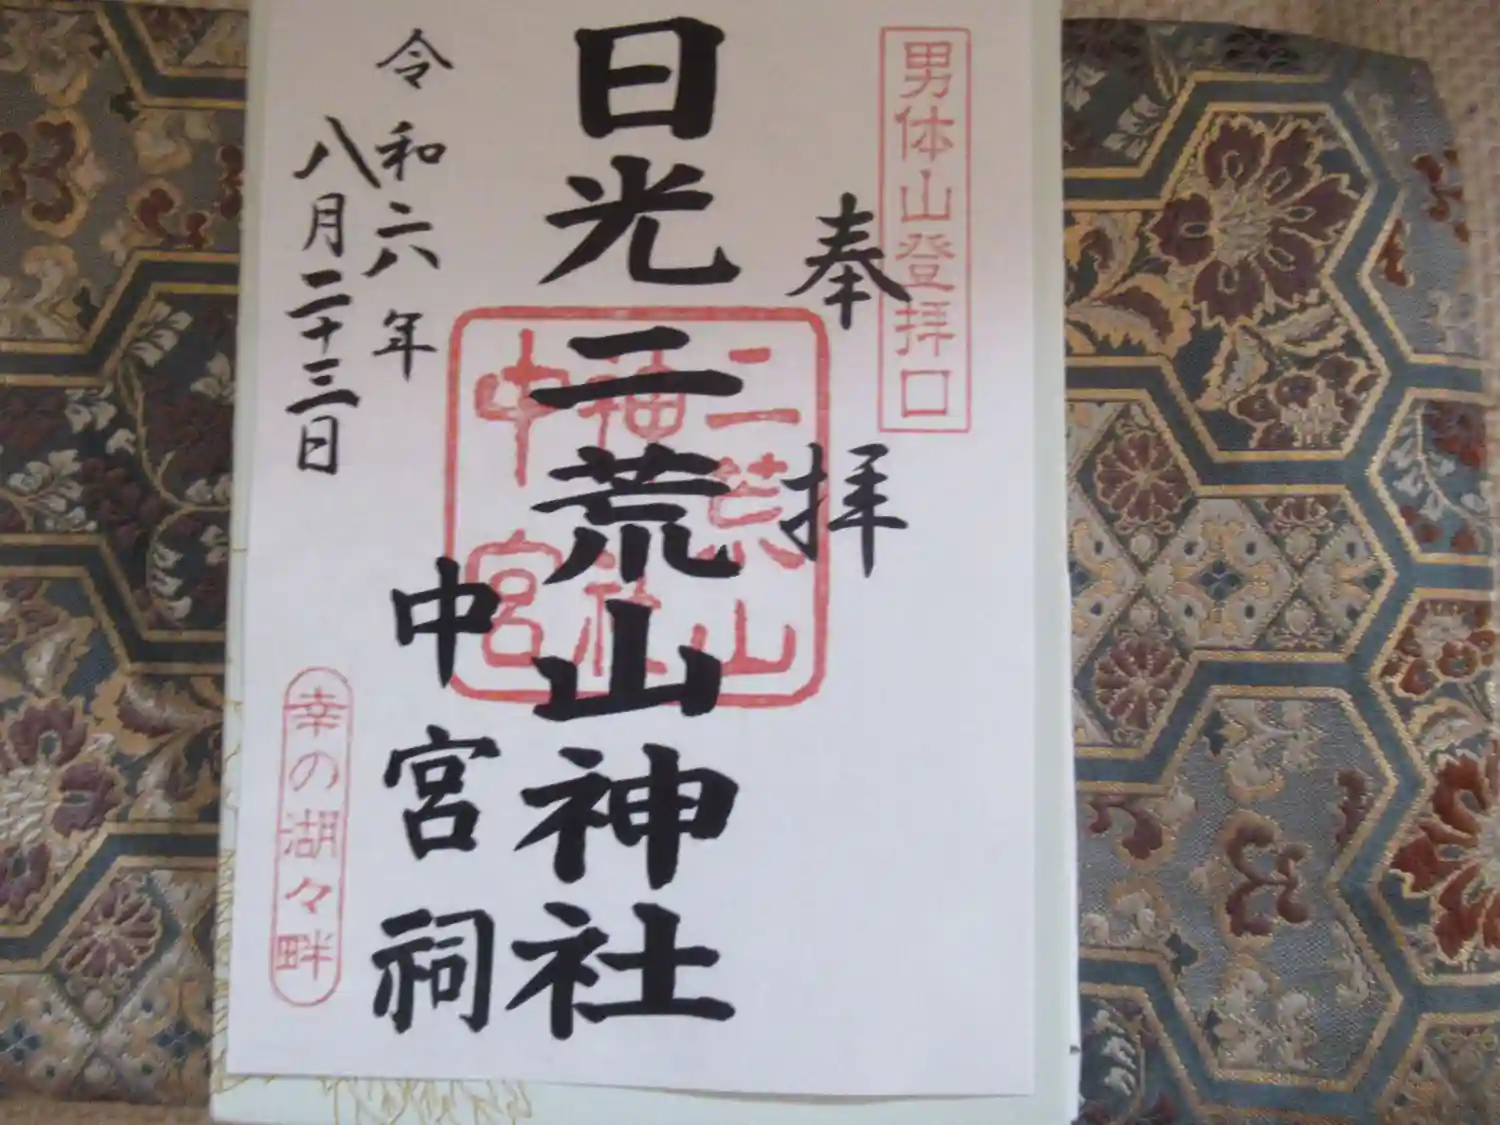 男体山登拝口
奉拝
日光二荒山神社
二荒山
神社
中宮
中宮祠
令和六年
八月二十三日
幸の湖々畔